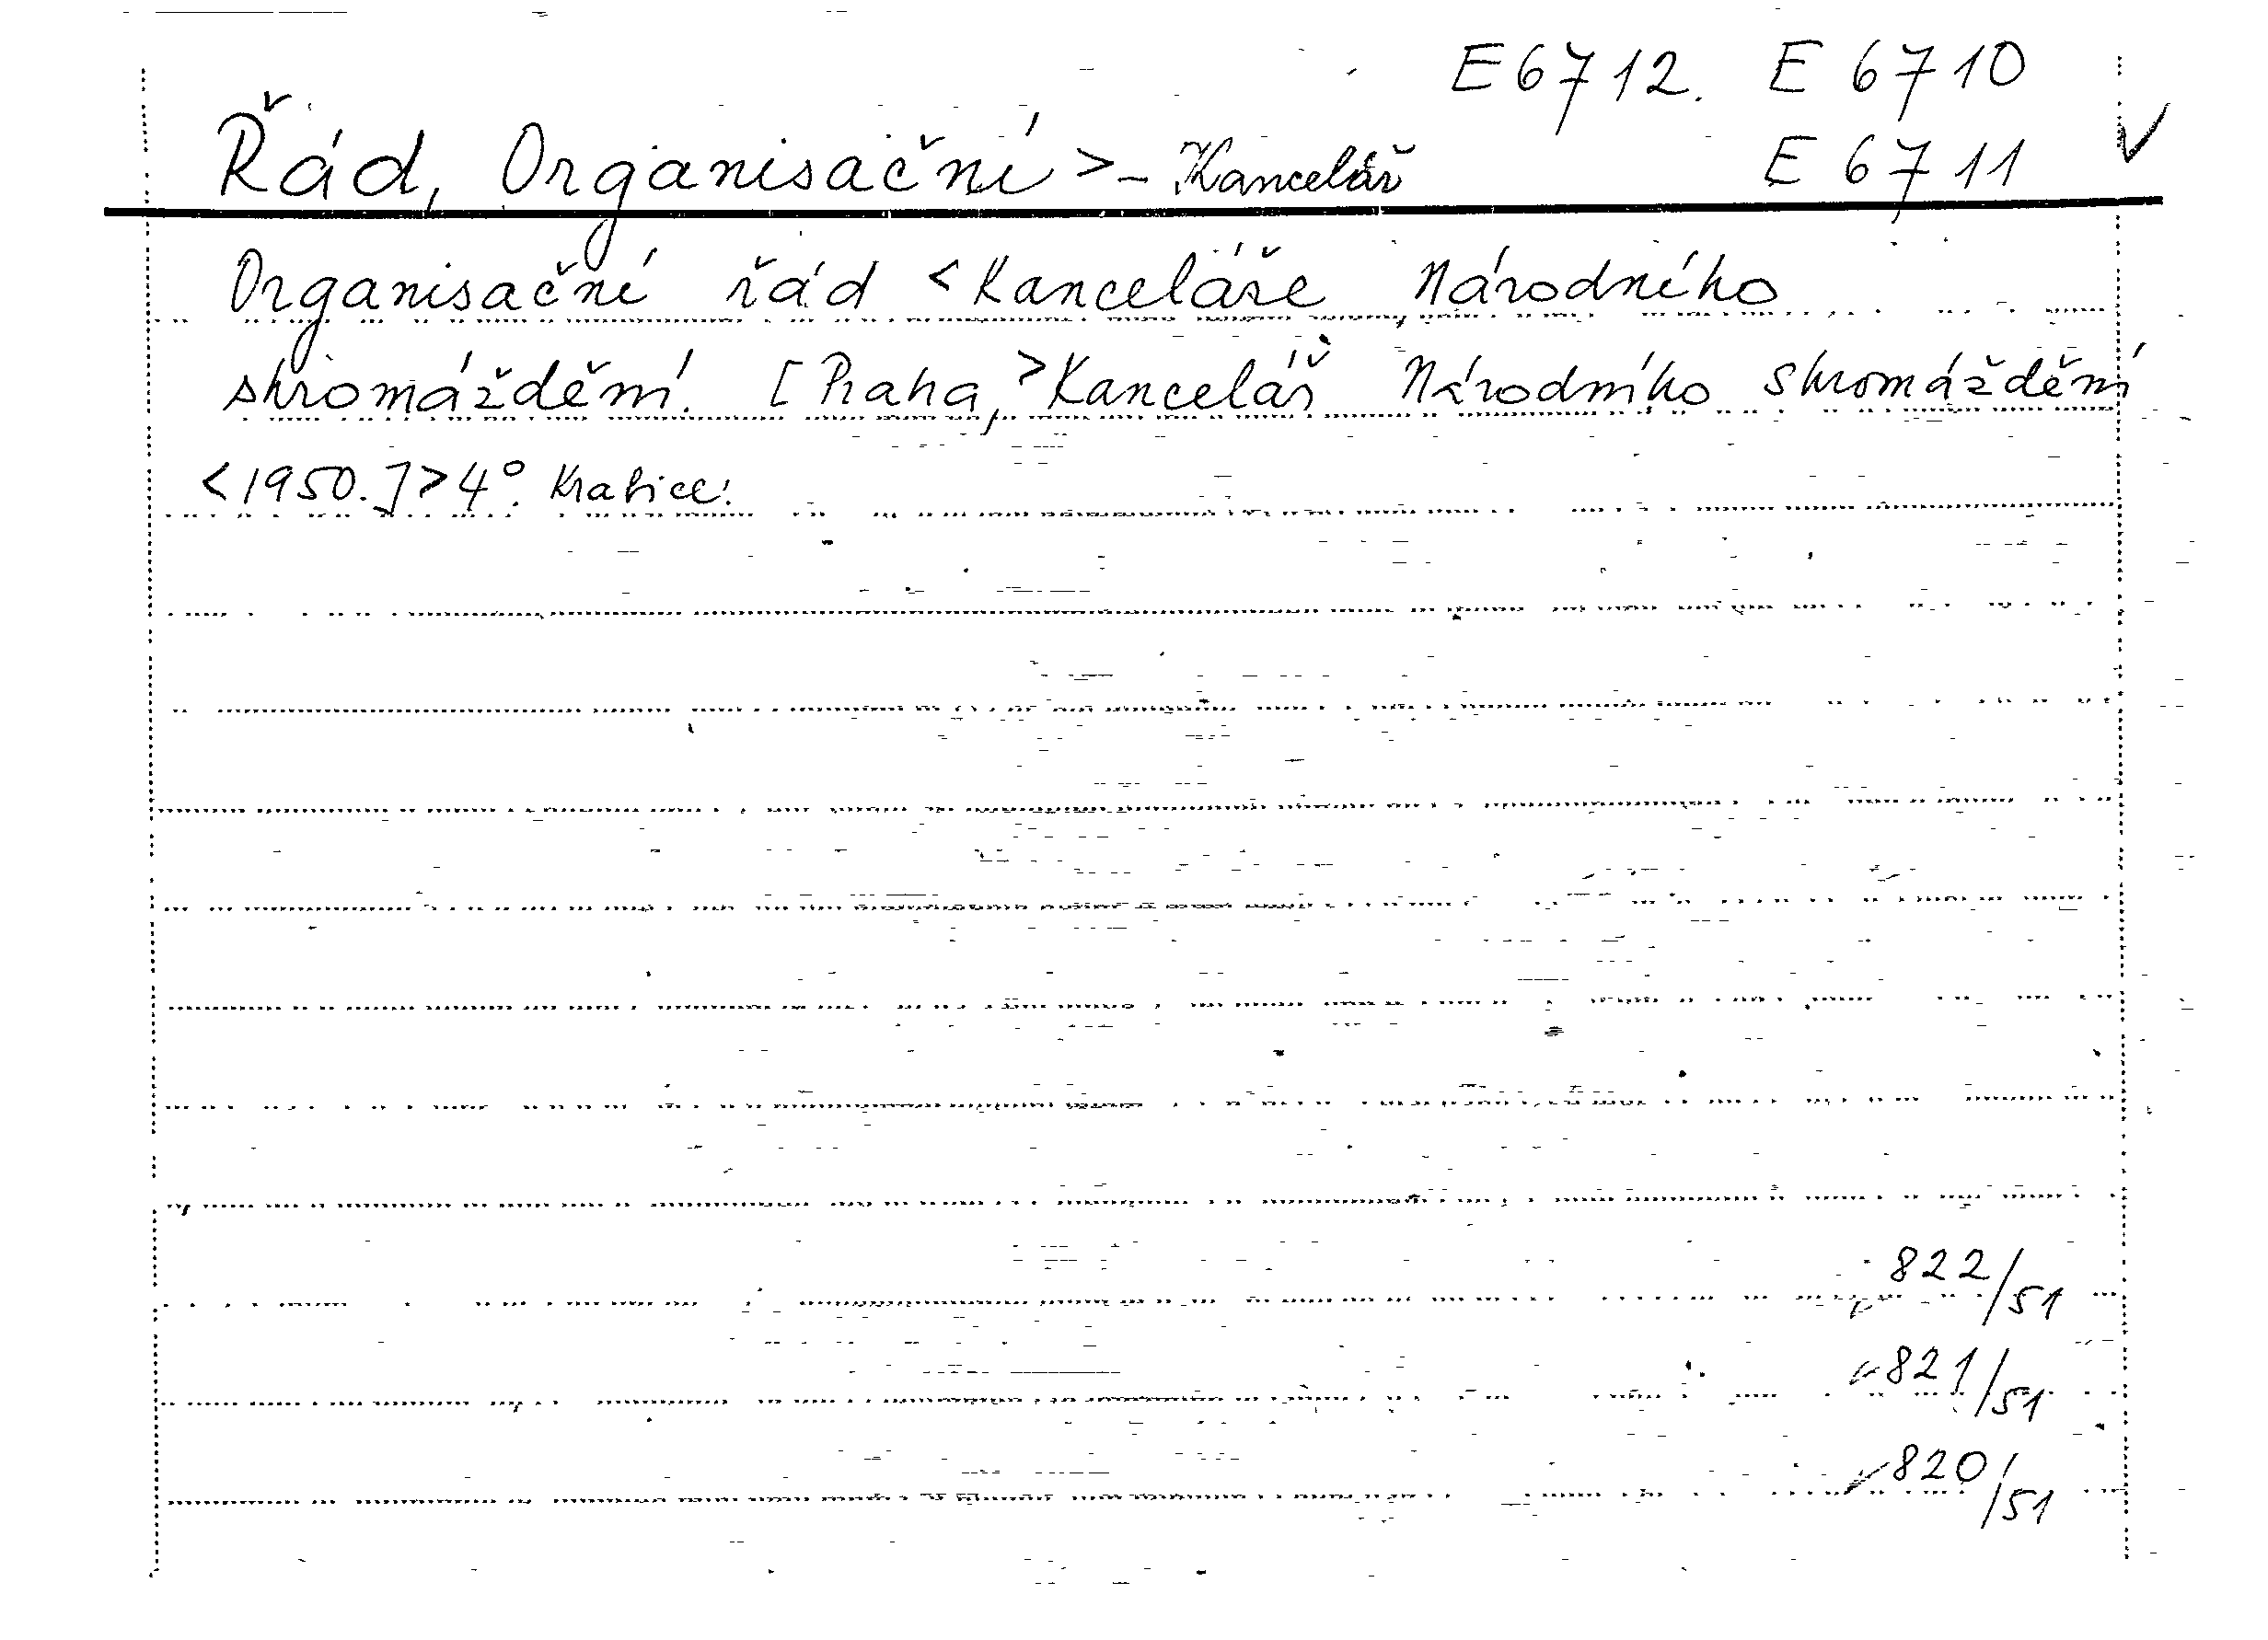 E 6712. E 6710
Řád, Organisační >- Kancelář E 6711
Organisační řád <Kanceláře Národního
shromáždění. [Praha, >Kancelář Národního shromáždění
<1950.]> 4°. Krabice.
822/51
821/51
820/51